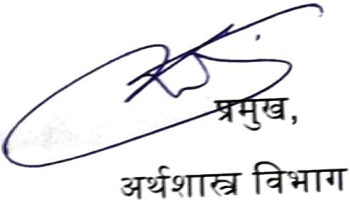 प्रमुख,
अर्थशास्त्र विभाग